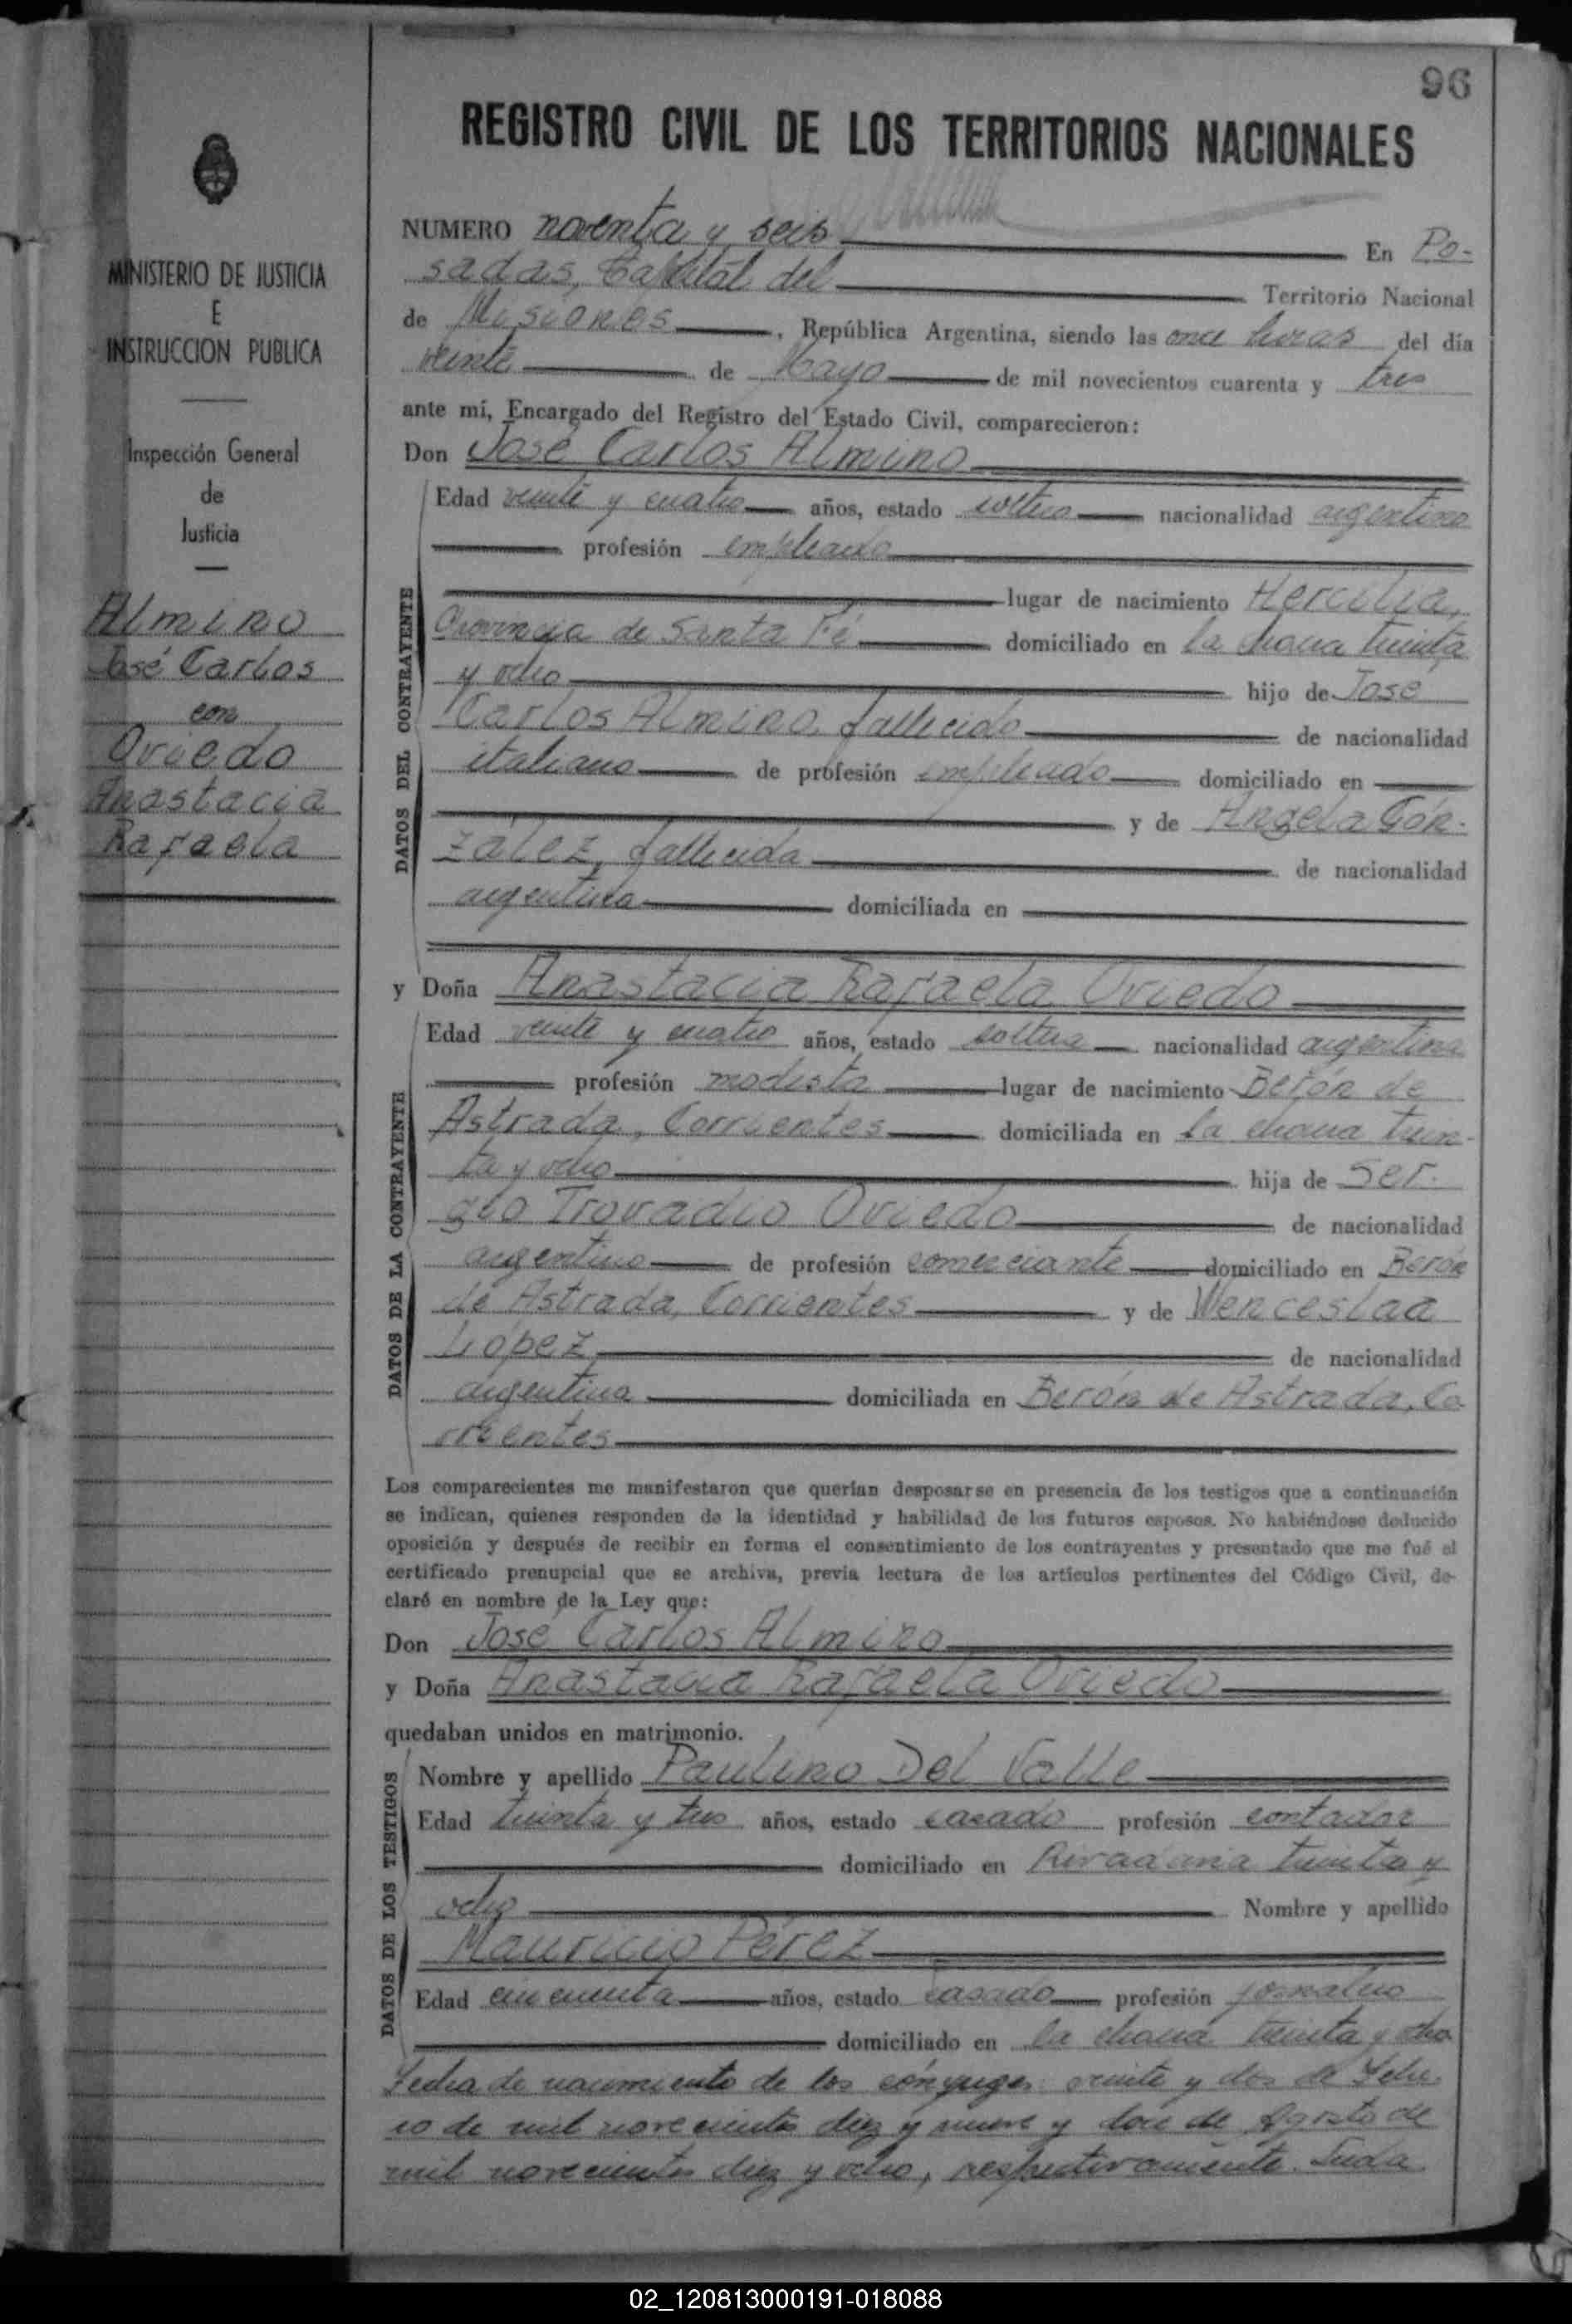 96
REGISTRO CIVIL DE LOS TERRITORIOS NACIONALES
MINISTERIO DE JUSTICIA
E
INSTRUCCION PUBLICA
Inspección General
de
Justicia
Almino
José Carlos
con
Oviedo
Anastacia
Rafaela
NUMERO noventa y seis En Po-
sadas, Capital del Territorio Nacional
de Misiones, República Argentina, siendo las once horas del día
veinte de Mayo de mil novecientos cuarenta y tres
ante mí, Encargado del Registro del Estado Civil, comparecieron:
Don José Carlos Almino
DATOS DEL CONTRAYENTE
Edad veinte y cuatro años, estado soltero nacionalidad argentina
profesión empleado
lugar de nacimiento Hercilia,
Provincia de Santa Fé domiciliado en la chacra treinta
y ocho hijo de José
Carlos Almino, fallecido de nacionalidad
italiano de profesión empleado domiciliado en
y de Angela Gón-
zález, fallecida de nacionalidad
argentina domiciliada en
y Doña Anastacia Rafaela Oviedo
DATOS DE LA CONTRAYENTE
Edad veinte y cuatro años, estado soltera nacionalidad argentina
profesión modista lugar de nacimiento Berón de
Astrada, Corrientes domiciliada en la chacra trein-
ta y ocho hija de Ser-
gio Trovadio Oviedo de nacionalidad
argentino de profesión comerciante domiciliado en Berón
de Astrada, Corrientes y de Wenceslaa
López de nacionalidad
argentina domiciliada en Berón de Astrada, Co-
rrientes
Los comparecientes me manifestaron que querían desposarse en presencia de los testigos que a continuación
se indican, quienes responden de la identidad y habilidad de los futuros esposos. No habiéndose deducido
oposición y después de recibir en forma el consentimiento de los contrayentes y presentado que me fué el
certificado prenupcial que se archiva, previa lectura de los artículos pertinentes del Código Civil, de-
claré en nombre de la Ley que:
Don José Carlos Almino
y Doña Anastacia Rafaela Oviedo
quedaban unidos en matrimonio.
DATOS DE LOS TESTIGOS
Nombre y apellido Paulino Del Valle
Edad treinta y tres años, estado casado profesión contador
domiciliado en Rivadavia treinta y
ocho Nombre y apellido
Mauricio Pérez
Edad cincuenta años, estado casado profesión jornalero
domiciliado en la chacra treinta y ocho
Fecha de nacimiento de los cónyuges: veinte y dos de Febre-
ro de mil novecientos diez y nueve y doce de Agosto de
mil novecientos diez y ocho, respectivamente.
02_120813000191-018088